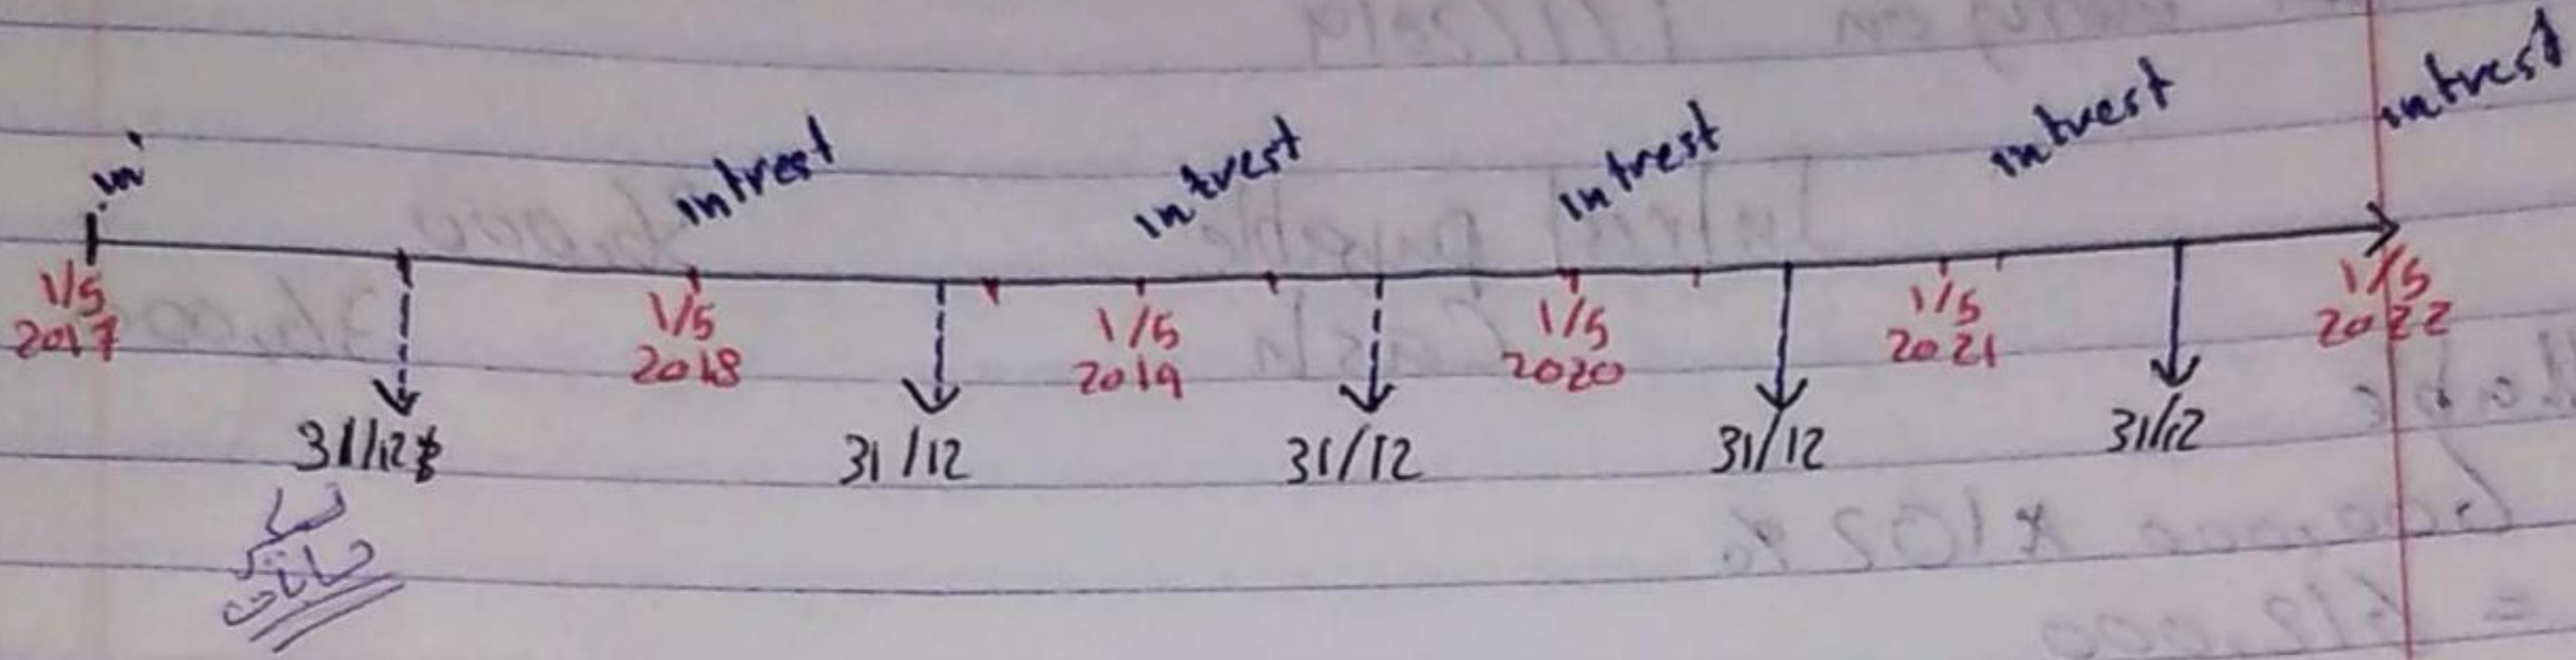 in
intrest intrest intrest intrest intrest
1/5 1/5 1/5 1/5 1/5 1/5
2017 2018 2019 2020 2021 2022
31/12 31/12 31/12 31/12 31/12